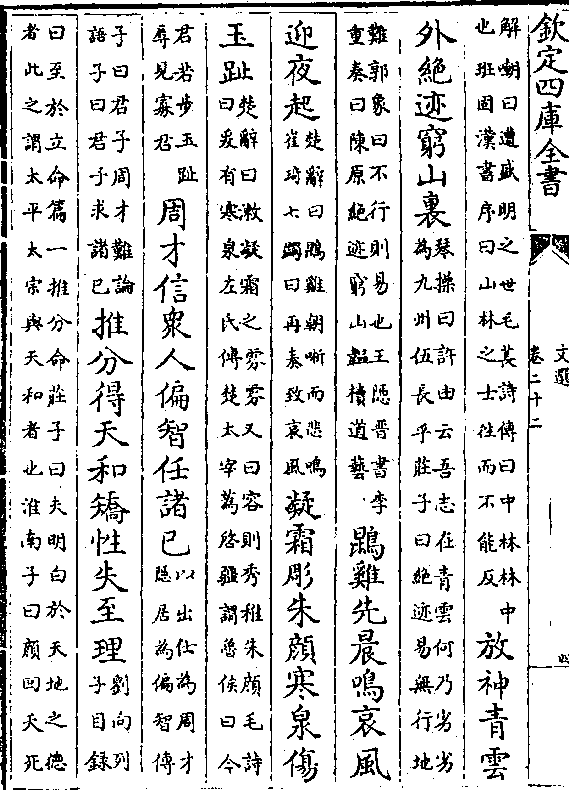 欽定四庫全書
文選
卷二十二
四
解嘲曰遭盛明之世毛萇詩傳曰中林林中
也班固漢書序曰山林之士往而不能反
放神青雲
外絶迹窮山裏
琴操曰許由云吾志在青雲何乃劣劣
為九州伍長乎莊子曰絶迹易無行地
難郭象曰不行則易也王隠晉書李
重奏曰陳原絶迹窮山韞櫝道藝
鵾雞先晨鳴哀風
迎夜起
楚辭曰鵾雞朝哳而悲鳴
崔琦七蠲曰再奏致哀風
凝霜彫朱顔寒泉傷
玉趾
楚辭曰漱凝霜之雰雰又曰容則秀稚朱顔毛詩
曰爰有寒泉左氏傳楚太宰蒍啓疆謂魯侯曰今
君若步玉趾
辱見寡君
周才信衆人偏智任諸已
以出仕為周才
隠居為偏智傅
子曰君子周才難論
語子曰君子求諸已
推分得天和矯性失至理
劉向列
子目録
曰至於立命篇一推分命莊子曰夫明白於天地之德
者此之謂太平太宗與天和者也淮南子曰顔回夭死